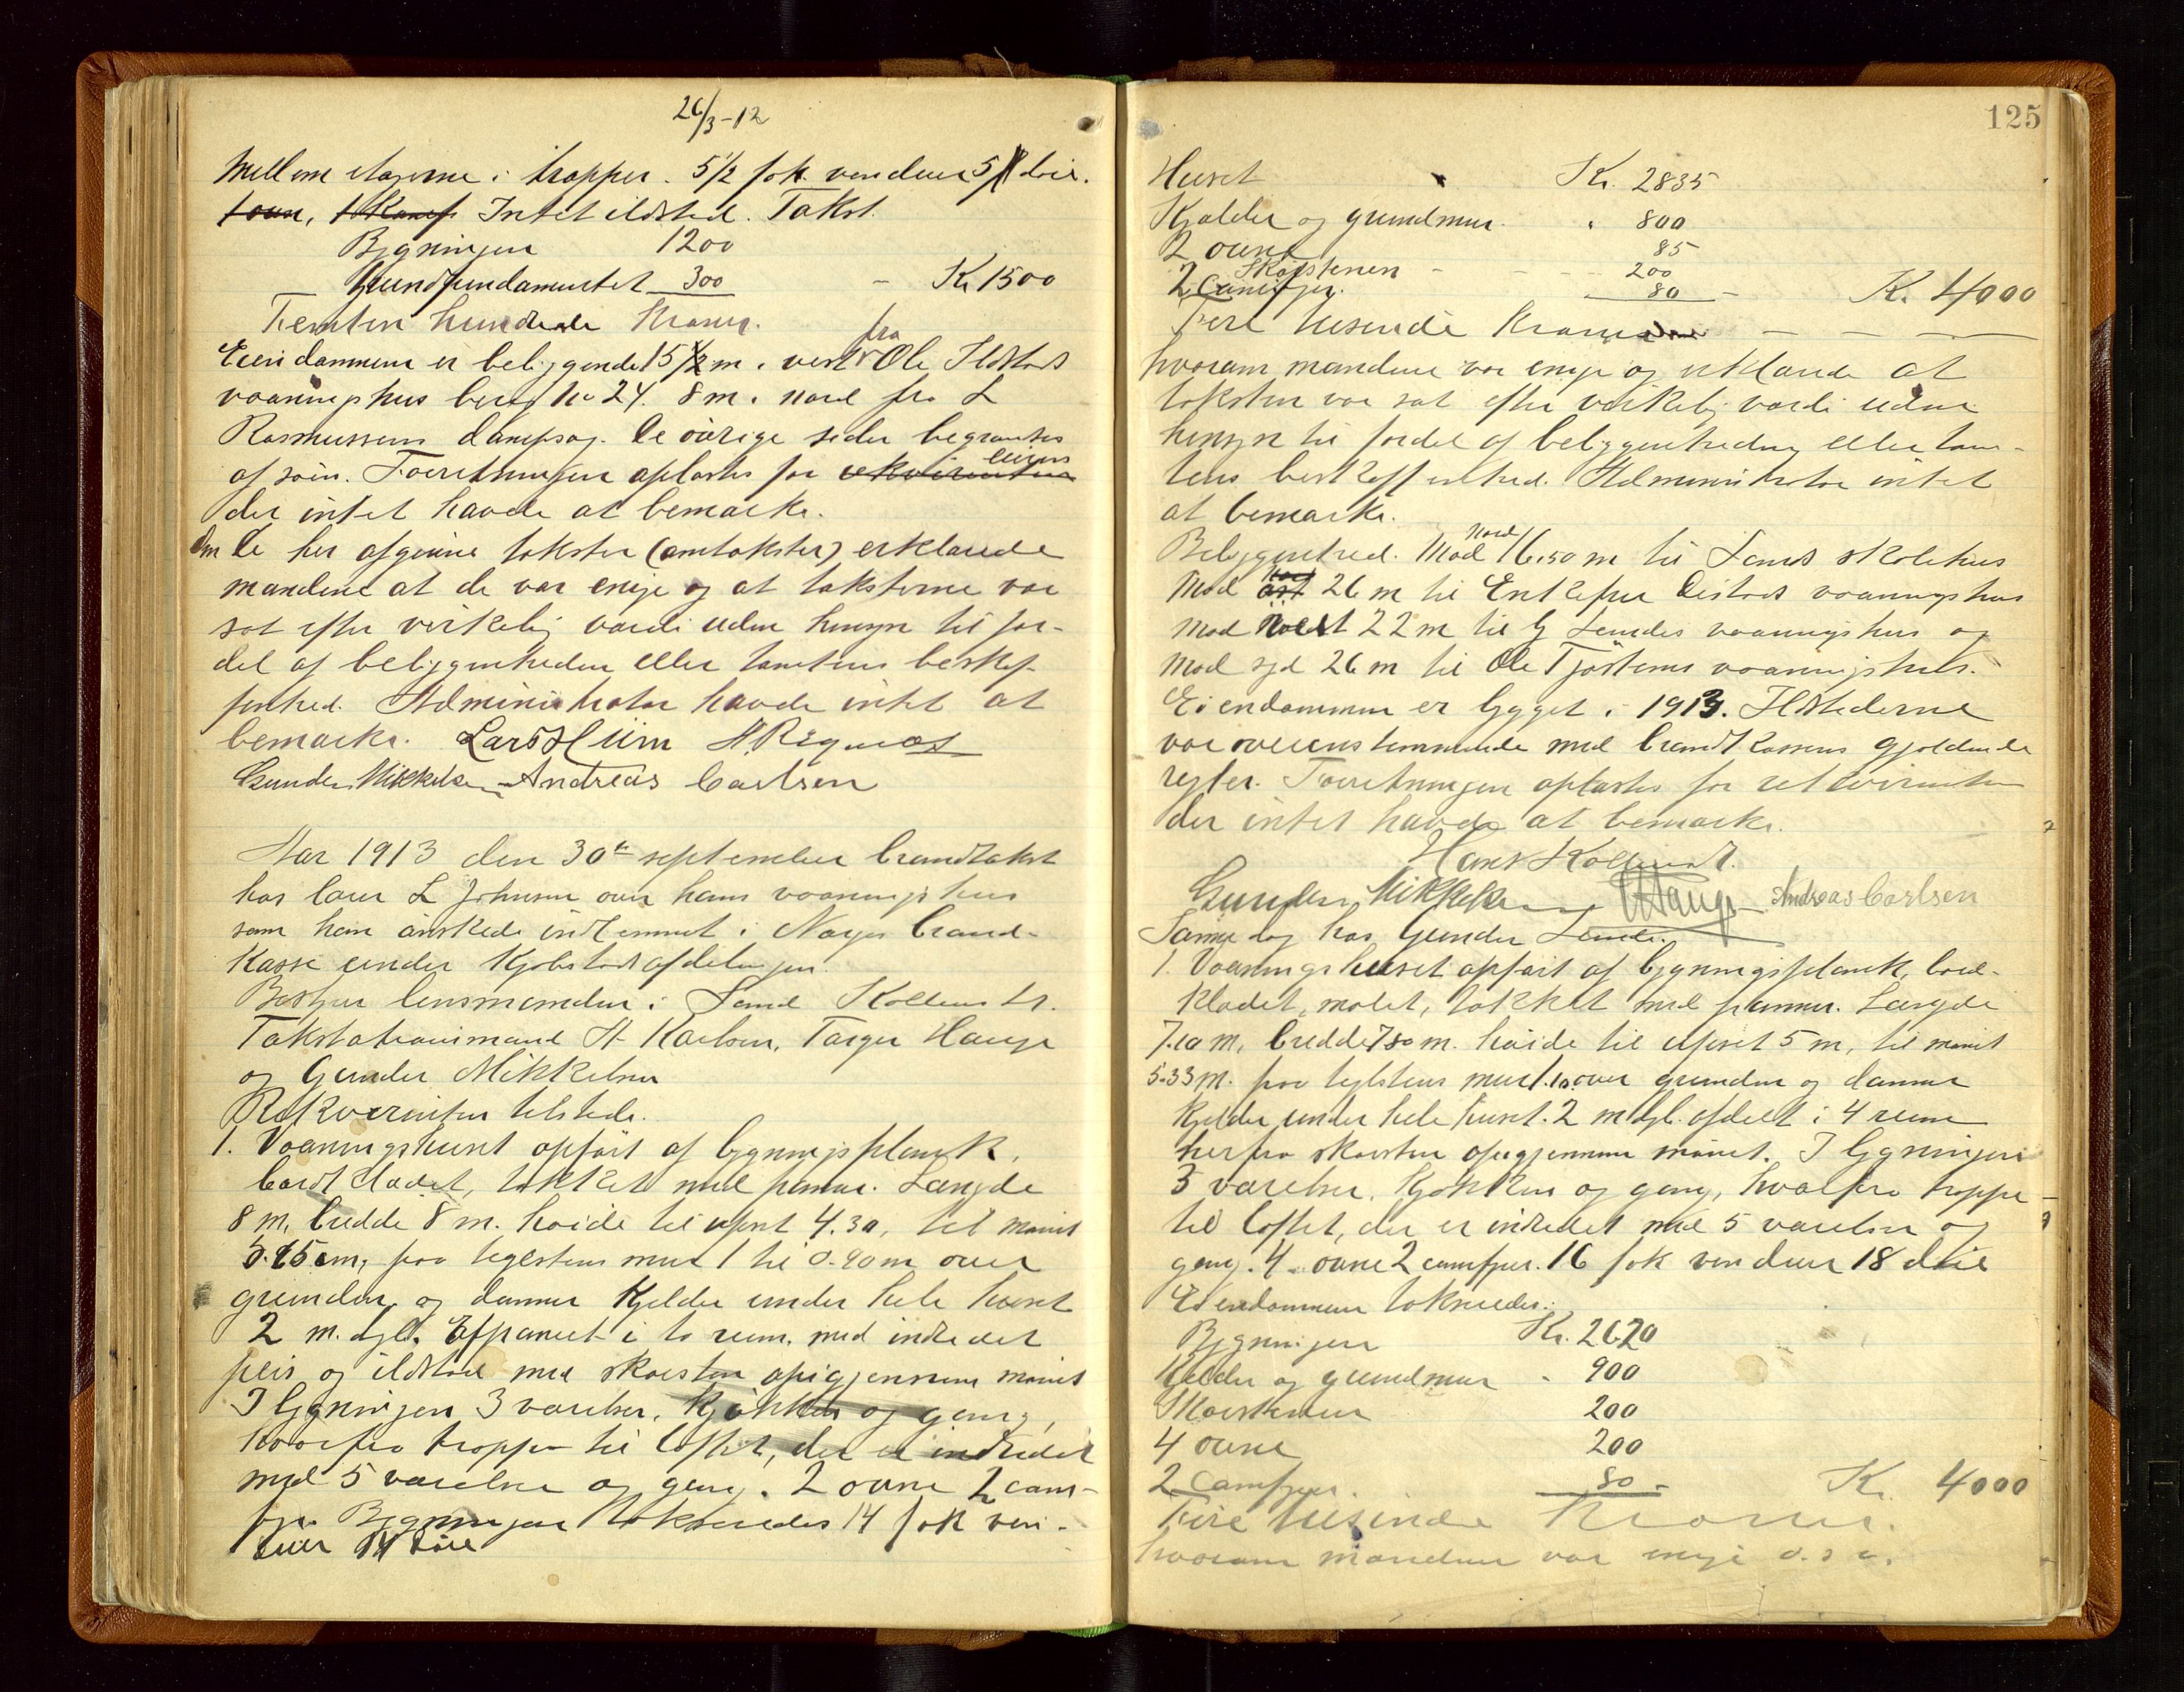 26/3-12
Mellem etagerne i trapper. 5 1/2 fok. venduer 5 döir.
Intet ildsted. Takst.
Bygningen 1200
Grundfundamentet 300 - Kr 1500
Femten hundrede Kroner.
Eiendammen er beliggende 15 m. vest fra Ole Ildstads
vaaningshus berig No 24. 8 m. nord fra L
Rasmussens dampsag. De övrige sider begrænses
af söin. Forretningen oplæstes for eieren
der intet havde at bemærke.
Om de her afgivne takster (omtakster) erklærede
mændene at de var enige og at taksterne var
sat efter virkelig værdi uden hensyn til for-
del af beliggenheden eller tomtens beskaf-
fenhed. Administrator havde intet at
bemærke. Lars Hiim
Gunder Mikkelsen Andreas Carlsen
Aar 1913 den 30te september brandtakst
hos L Johnsen over hans vaaningshus
som han önskede indlemmet i Norges brand-
kasse under Kjöbstadsafdelingen.
Bestyrer lensmanden i Sand Kolltveit.
Takstationsmænd A. Karlsen, Targer Hauge
og Gunder Mikkelsen
Rekvirenten tilstede.
1. Vaaningshuset opfört af bygningsplank,
bordklædet, tækket med panner. Længde
8 m, bredde 8 m. höide til ufset 4.30, til mönet
paa teglstens mur 1 til 0.90 m over
grunden og danner Kjelder under hele huset
2 m. dyb. Afpanelt i to rum, med indredet
peis og ildsted med skorsten opigjennem mönet
I bygningen 3 værelser, kjökken og gang,
hvorfra trapper til loftet, der er indredet
med 5 værelser og gang. 2 ovne 2 com-
fyr. Bygningen takseredes 14 fok ven-
duer 14 döre
125
Huset Kr. 2835
Kjælder og grundmur " 800
2 ovne 85
Skorstenen - 200
2 Comfyr. 80 - Kr. 4000
Fire tusinde Kroner
hvorom mændene var enige og erklærede at
taksten var sat efter virkelig værdi uden
hensyn til fordel af beliggenheden eller tom-
tens beskaffenhed. Administrator intet
at bemærke.
Beliggenhed. Mod Nord 16,50 m til Sands skolehus
Mod 26 m til Enkefru Eistads vaaningshus
Mod 22 m til G Lendes vaaningshus og
Mod syd 26 m til Ole Tjöstems vaaningshus.
Eiendammen er bygget i 1913. Ildstederne
var overensstemmende med brandkassens gjældende
regler. Forretningen oplæstes for rekvirenten
der intet havde at bemærke.
Hans Kolltveit.
Gunder Mikkelsen T Hauge Andreas Carlsen
Samme dag hos Gunder Lende.
1. Vaaningshuset opfört af bygningsplank, bord-
klædet, malet, tækket med panner. Længde
7.10 m, bredde 7.80 m. höide til ufset 5 m, til mönet
5.33 m. paa teglstens mur 1.10 over grunden og danner
Kjelder under hele huset. 2 m dyb. afdelt i 4 rum
herfra skorsten opigjennem mönet. I bygningen
3 værelser, Kjökken og gang, hvorfra trappe
til loftet, der er indredet med 5 værelser og
gang. 4 ovne 2 comfyr. 16 fok venduer 18 döre
Eiendammen takseredes:
Bygningen Kr. 2620
Kjelder og grundmur " 900
Skorstenen 200
4 ovne 200
2 Comfyr. 80 - Kr. 4000
Fire tusinde Kroner.
hvorom mændene var enige o.s.v.